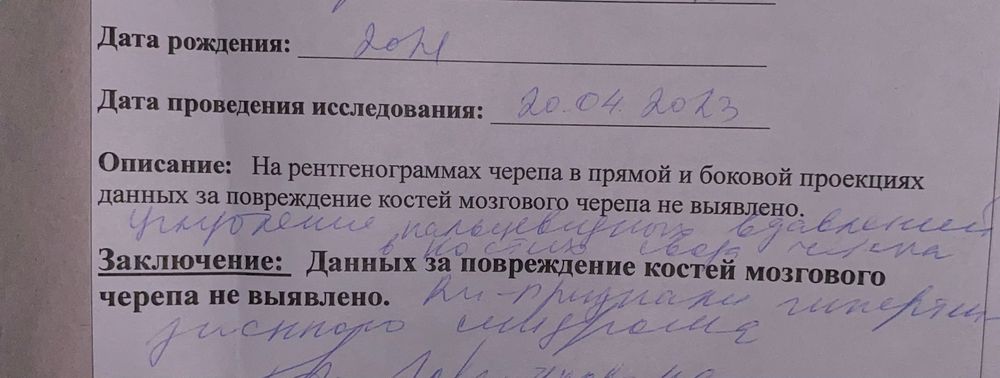 Дата рождения: 2021
Дата проведения исследования: 20.04.2023
Описание: На рентгенограммах черепа в прямой и боковой проекциях
данных за повреждение костей мозгового черепа не выявлено.
углубление пальцевидных вдавлений
в костях свода черепа
Заключение: Данных за повреждение костей мозгового
черепа не выявлено. Rn-признаки гипертен
зионного синдрома